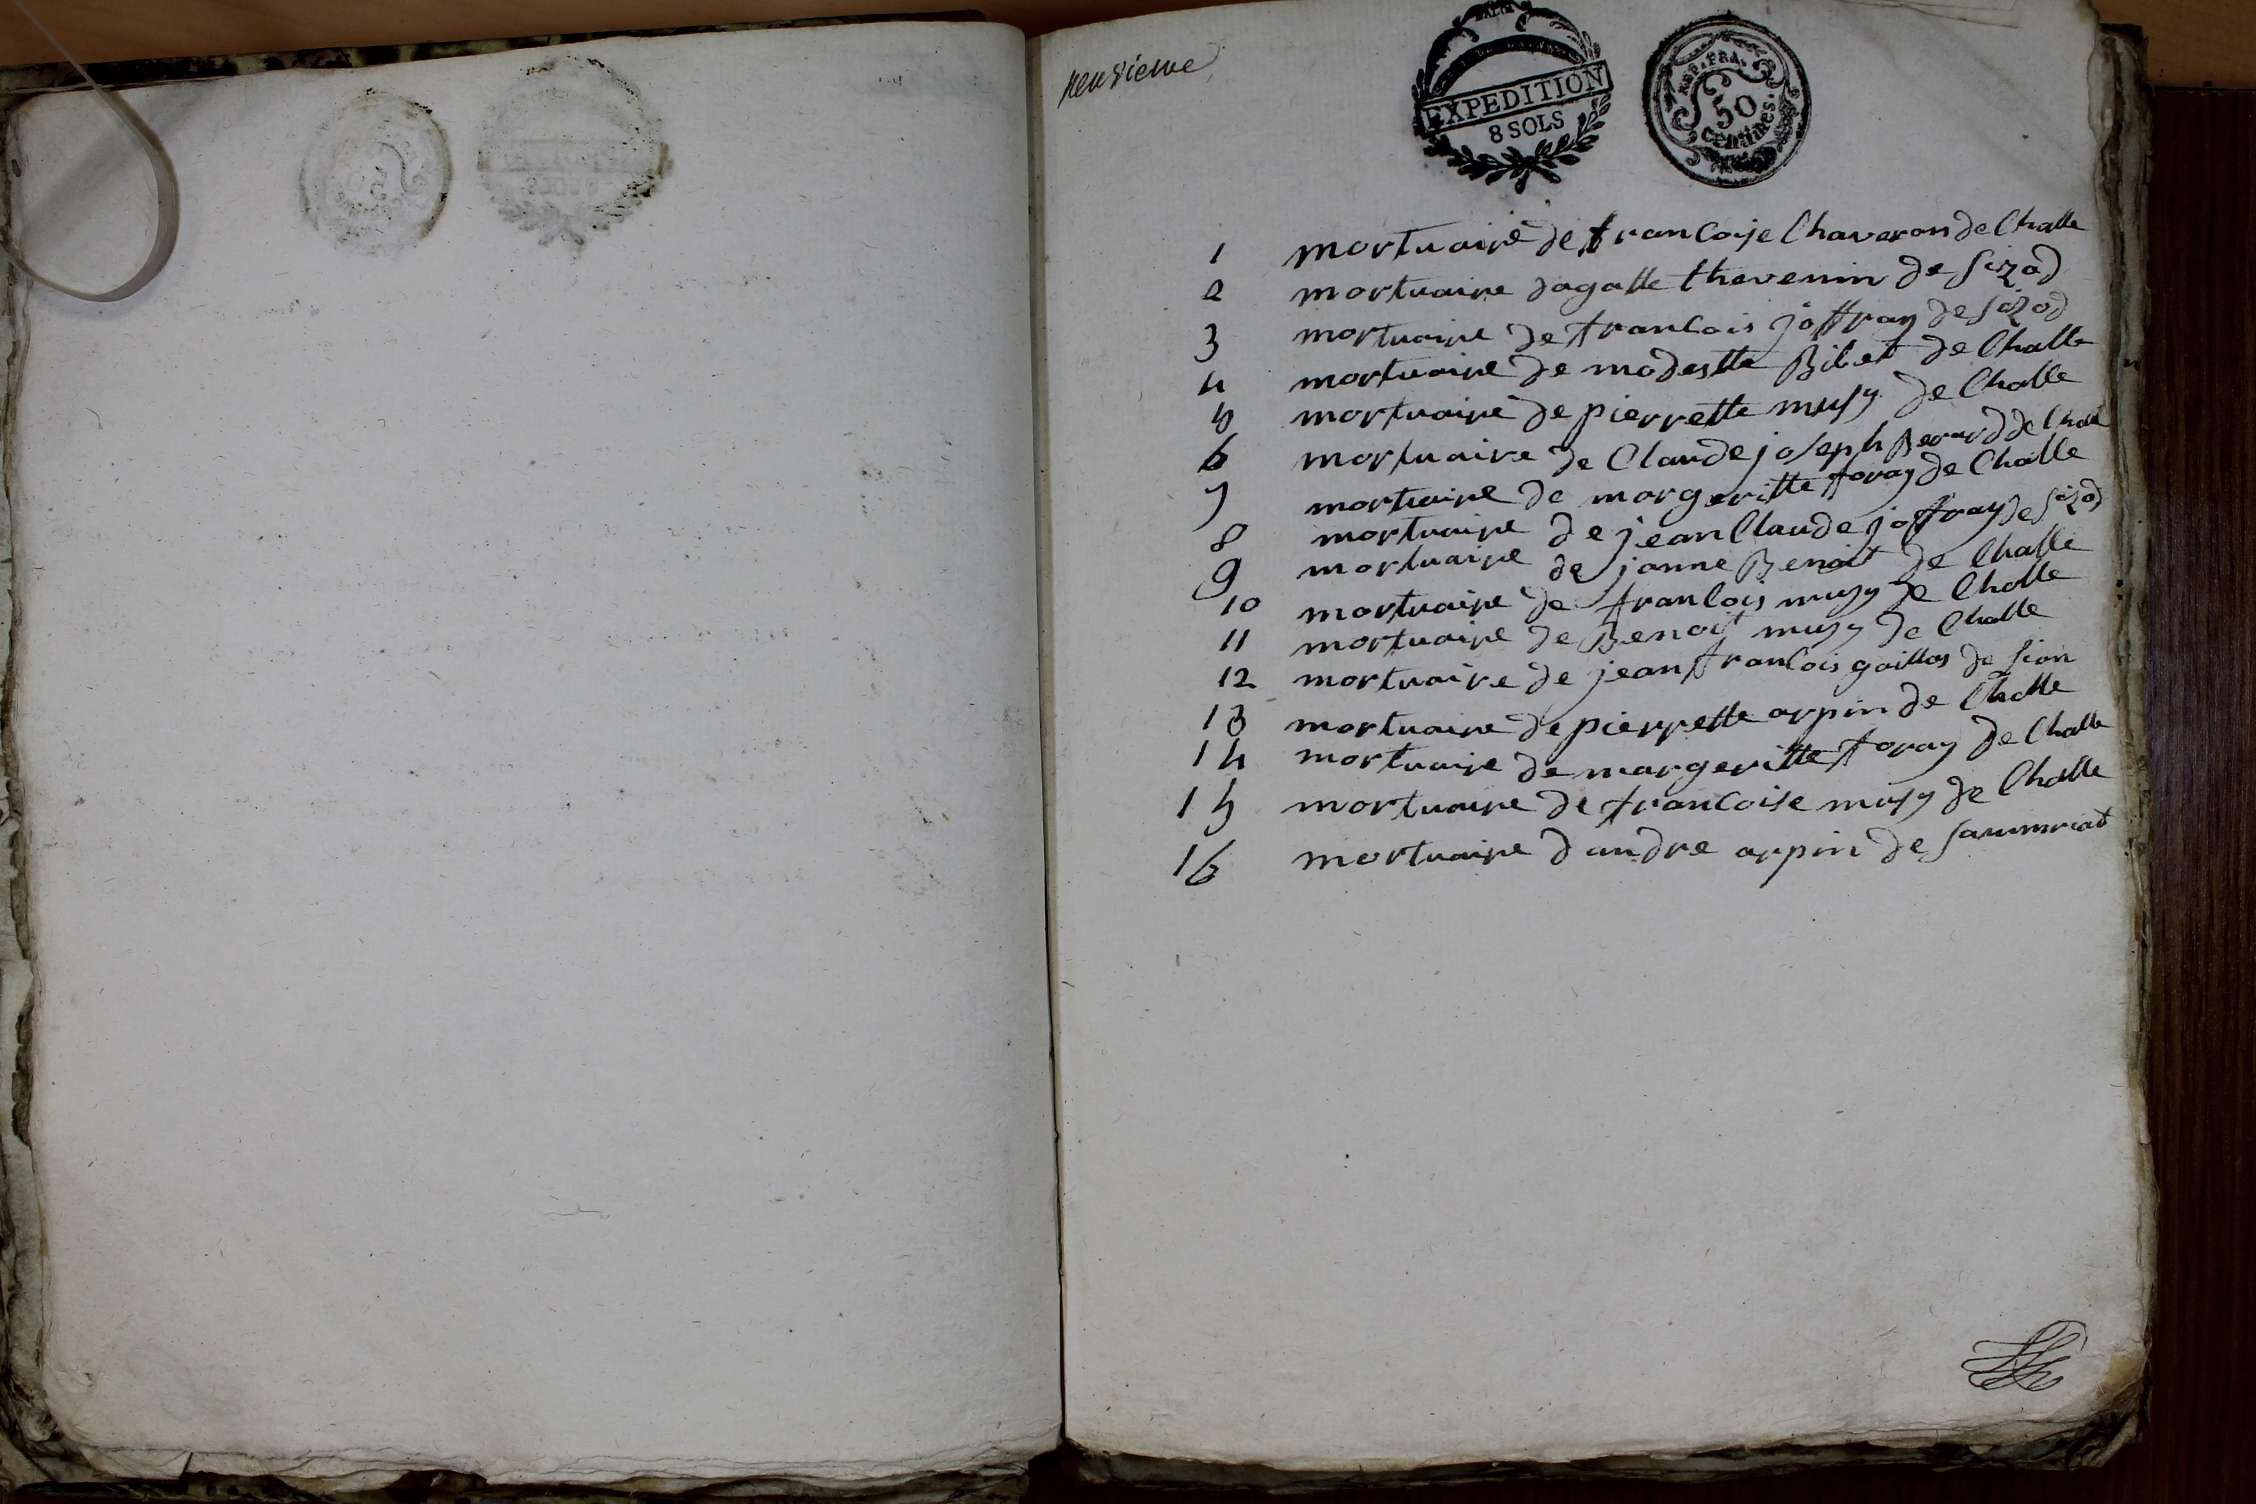 neuvieme
EXPEDITION
8 SOLS
REP. FRA.
50
Centimes.
1 mortuaire de francoise Chaveron de Challe
2 mortuaire dagatte thevenin de sizod
3 mortuaire de francois joffray de sizod
4 mortuaire de modestte Bibet de Challe
5 mortuaire de pierrette musy de Challe
6 mortuaire de Claude joseph Berard de Challe
7 mortuaire de margeritte foray de Challe
8 mortuaire de jean Claude joffray de sizod
9 mortuaire de janne Benoit de Challe
10 mortuaire de francois musy de Challe
11 mortuaire de Benoit musy de Challe
12 mortuaire de jean francois gaillas de sion
13 mortuaire de pierrette arpin de Challe
14 mortuaire de margeritte foray de Challe
15 mortuaire de francoise musy de Challe
16 mortuaire dandre arpin de